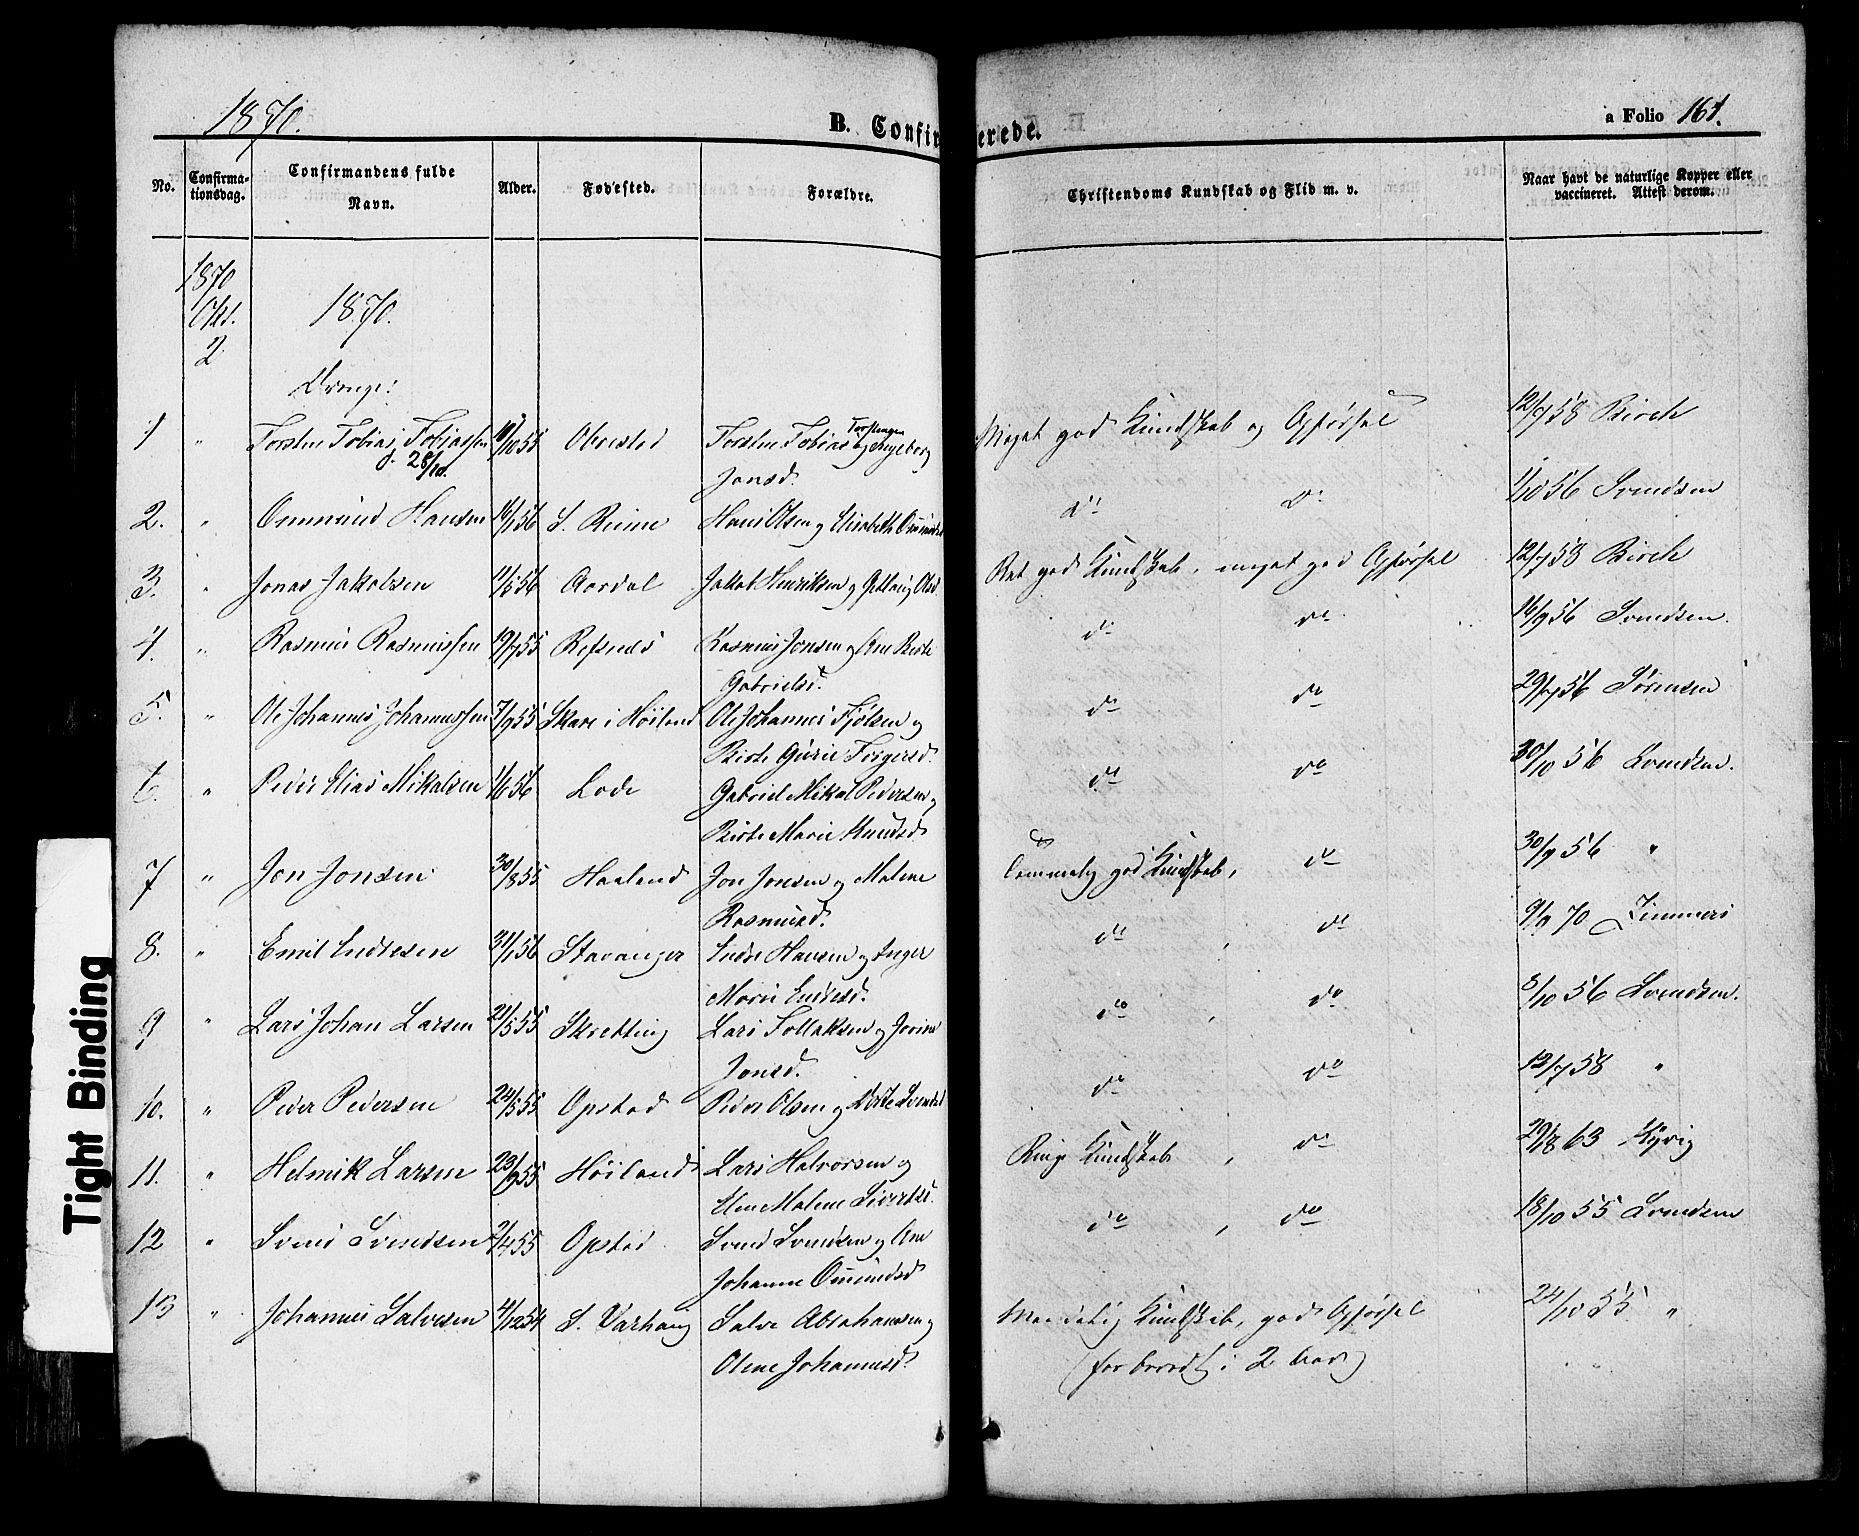 1870.
B. Confirmerede.
a Folio 161.
No. Confirmationsdag. Confirmandens fulde Navn. Alder. Fødested. Forældre. Christendoms Kundskab og Flid m. v. Naar havt de naturlige Kopper eller vaccineret. Attest derom.
1870
Okt. 1870.
2
Drenge:
1 " Torsten Tobias Tobiassen 10/55 Obrestad Torsten Tobias Torstensen og Ingeborg Meget god Kundskab og Opførsel 12/9 58 Birch
d. 28/10. Jonsd.
2. " Ommund Hansen 16/1 56 S. Reime Hans Olsen og Elisabeth Ommundsd. do do 1/10 56 Svendsen
3. " Jonas Jakobsen 11/5 56 Aardal Jakob Henriksen og Olsd. Ret god Kundskab, meget god Opførsel 12/7 58 Birch
4. " Rasmus Rasmussen 19/7 55 Refsnes Rasmus Jonsen og Ane Berte do do 16/9 56 Svendsen.
Gabrielsd.
5. " Ole Johannes Johannessen 7/9 55 Skare i Høiland Ole Johannes Fjølsen og do do 29/7 56 Sørensen
Berte Gurie Torgersd.
6. " Peder Elias Mikalsen 1/6 56 Lode Gabriel Mikal Pedersen og do do 30/10 56 Svendsen.
Berte Marie Knudsd.
7 " Jon Jonsen 30/8 55 Haaland Jon Jonsen og Malene Temmelig god Kundskab, do 30/9 56 "
Rasmusd.
8. " Emil Endresen 31/1 56 Stavanger Endre Hansen og Inger do , do 9/9 70 Zimmer
Marie Endresd.
9 " Lars Johan Larsen 21/5 55 Skretting Lars Tollaksen og do , do 8/10 56 Svendsen.
Jonsd.
10. " Peder Pedersen 24/5 55 Opstad Peder Olsen og Berte Svendsd. do do 12/7 58 "
11. " Helmik Larsen 23/9 55 Høiland Lars Halvorsen og Ringe Kundskab , do 29/8 63 Kyvig
Elen Malene Sivertsd.
12 " Svend Svendsen 2/4 55 Opstad. Svend Svendsen og Ane do , do 18/10 55 Svendsen
Johanne Omundsd.
13 " Johannes Salvesen 4/12 54 S. Varhaug Salve Abrahamsen og Maadelig Kundskab, god Opførsel 24/10 55 "
Olene Johannesd. (forberedt i 2 Aar)
Tight Binding